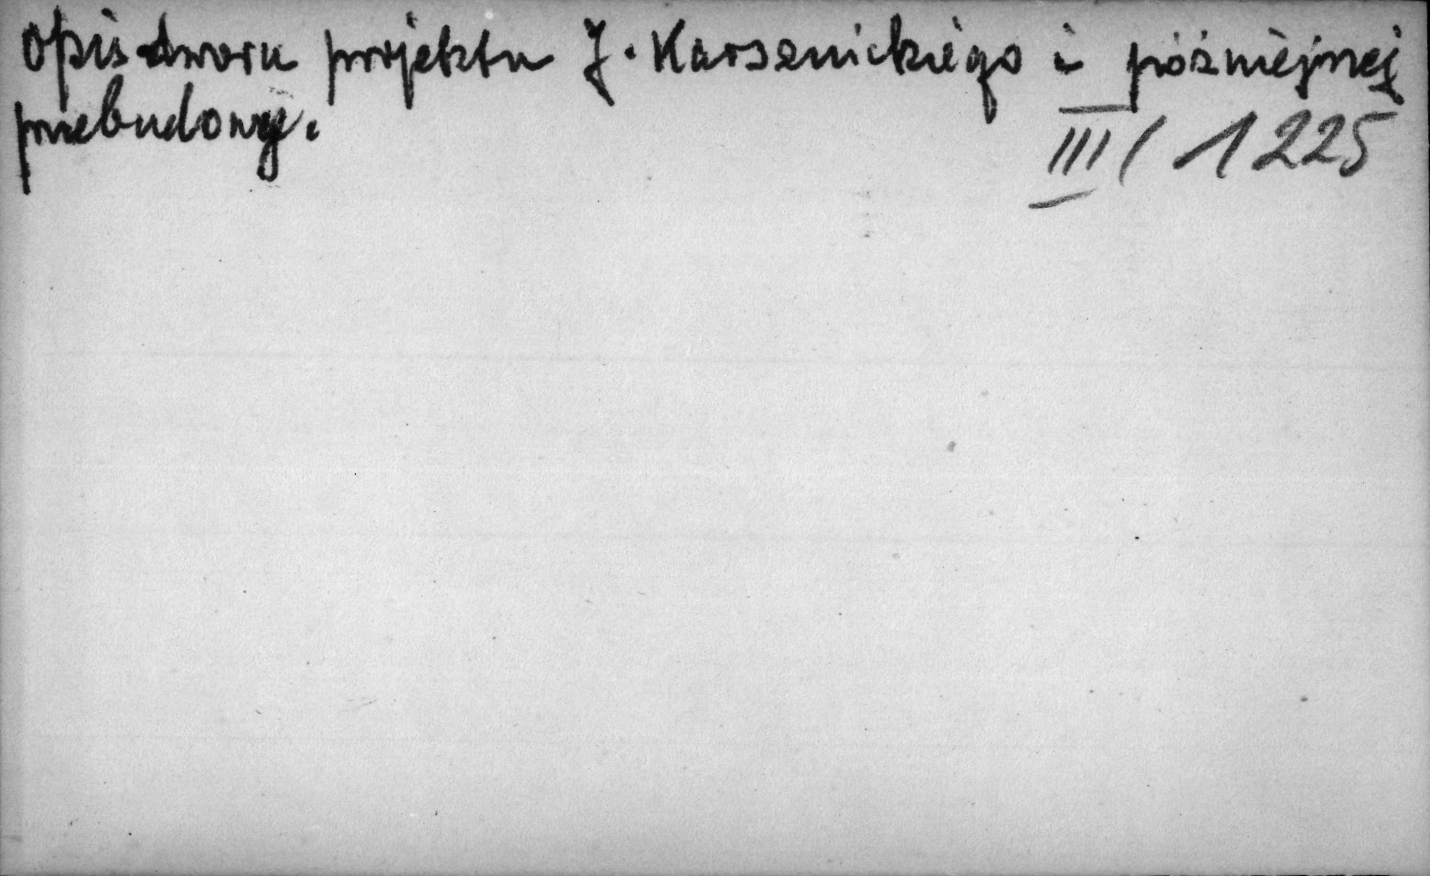 Opis dworu projektu J. Karsznickiego i późniejszej
przebudowy.
III/1225